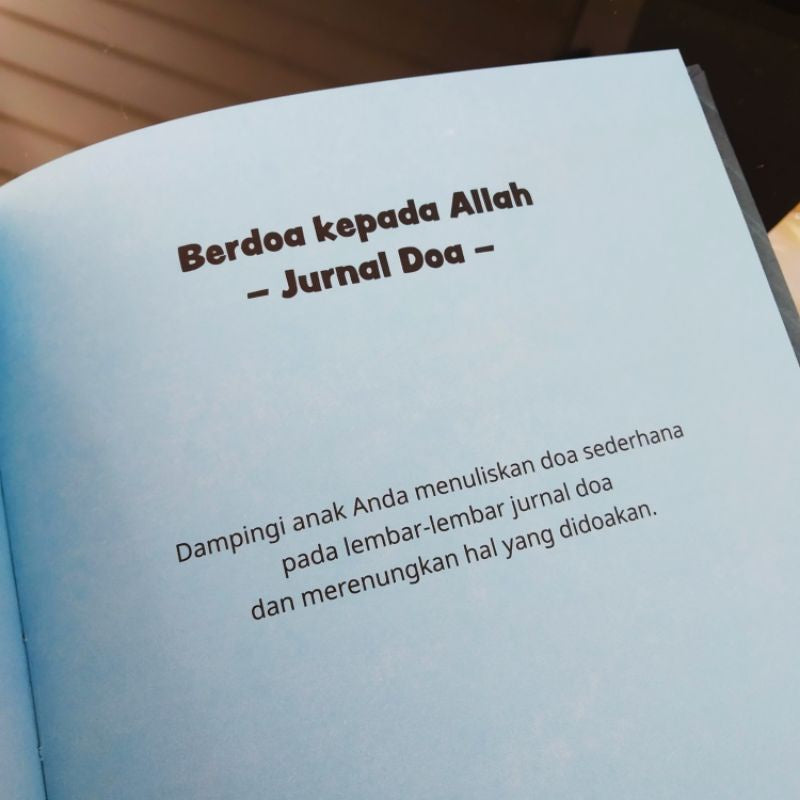 Berdoa kepada Allah
– Jurnal Doa –
Dampingi anak Anda menuliskan doa sederhana
pada lembar-lembar jurnal doa
dan merenungkan hal yang didoakan.